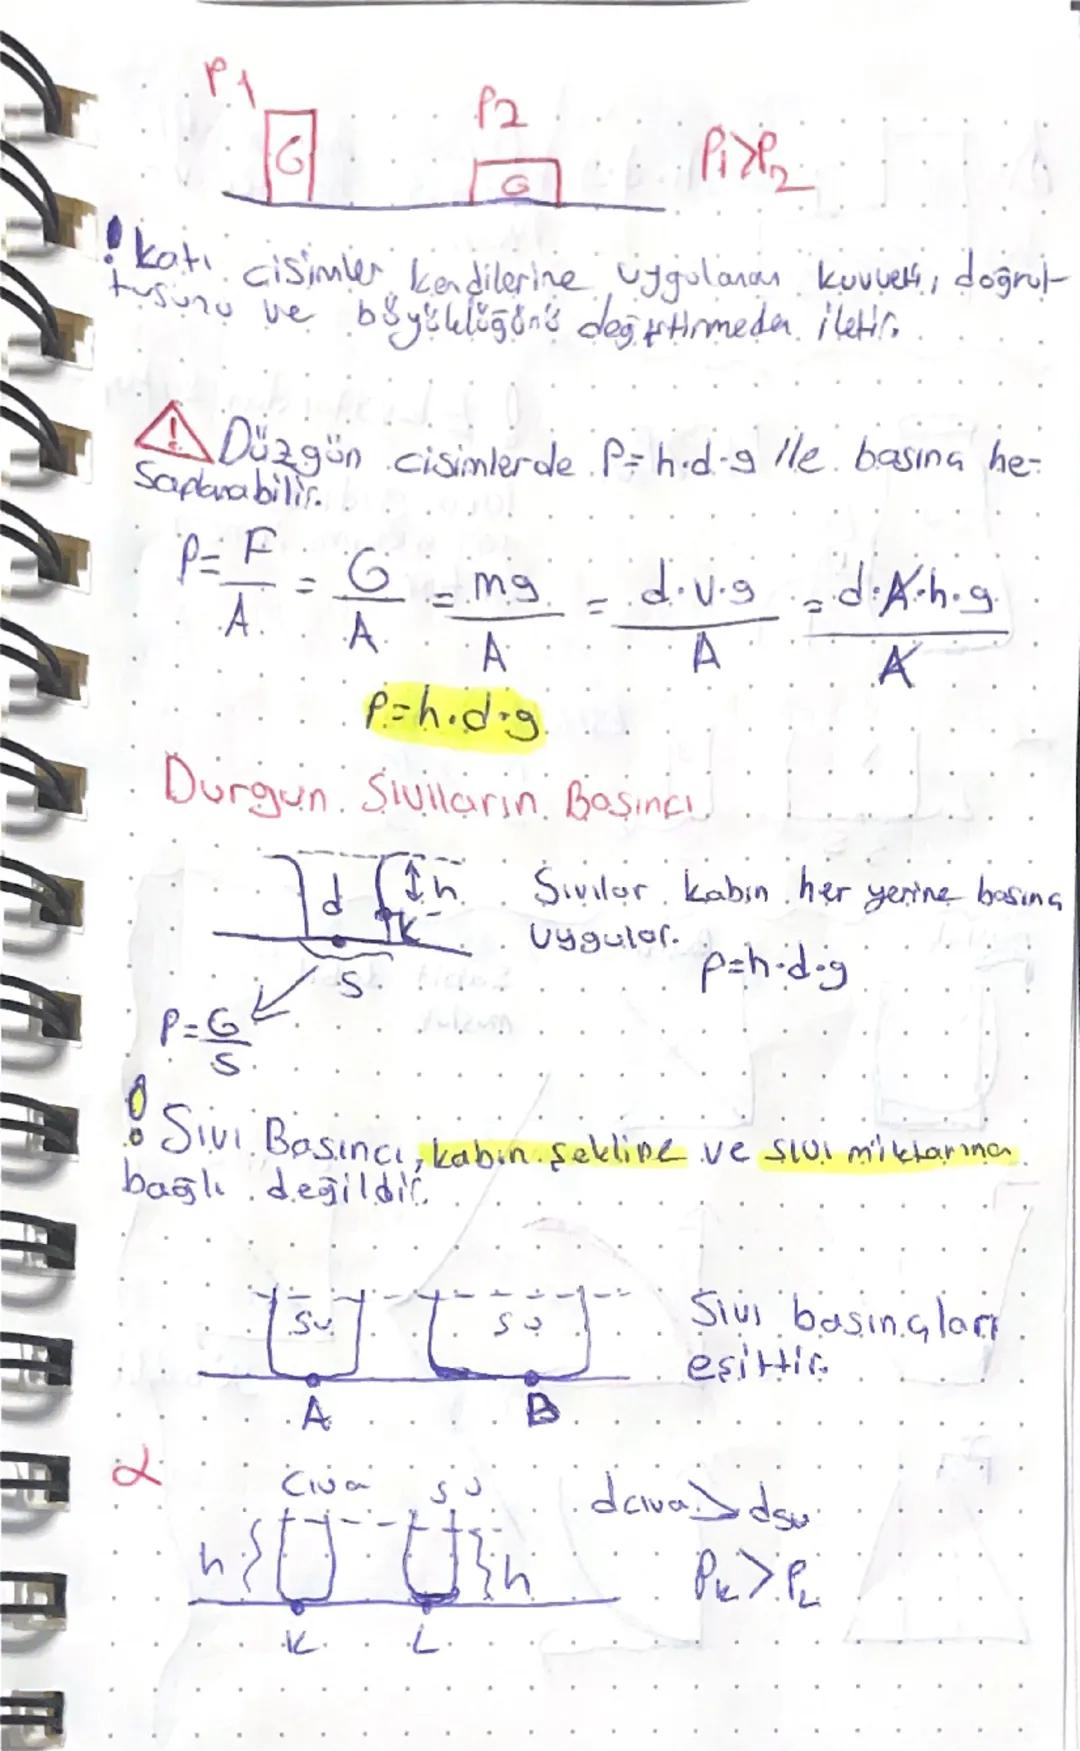 P1
P2
G
G
P1>P2
! Katı cisimler kendilerine uygulanan kuvveti, doğrul-
tusunu ve büyüklüğünü değiştirmeden iletir.
! Düzgün cisimlerde P=h.d.g ile basınç he-
saplanabilir.
P= F/A = G/A = mg/A = d.v.g/A = d.A.h.g/A
P=h.d.g
Durgun Sıvıların Basıncı
d h K
Sıvılar kabın her yerine basınç
uygular.
P=h.d.g
S
P=G/S
! Sıvı Basıncı, kabın şekline ve sıvı miktarına
bağlı değildir.
su su
Sıvı basınçları
eşittir.
A B
Cıva su
dcıva > dsu
h h
PK > PL
K L